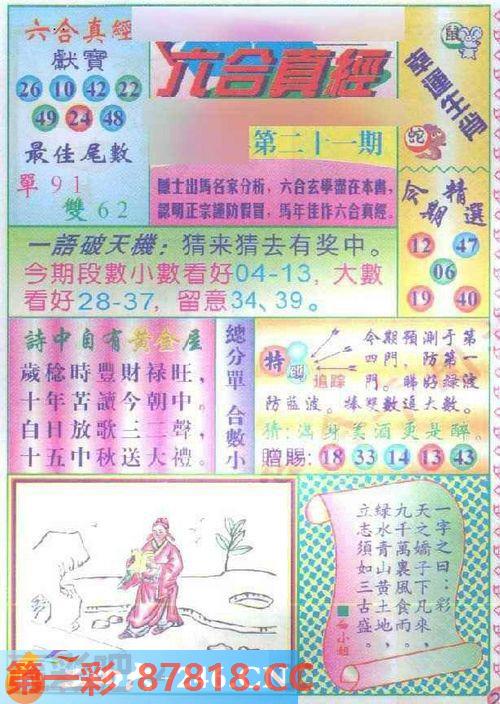 六合真經
獻寶
26 10 42 22
49 24 48
最佳尾數
單 91
雙 62
六合真經
第二十一期
隱士出馬名家分析，六合玄學盡在本書，
認明正宗謹防假冒，馬年佳作六合真經。
鼠
幸運生肖
蛇
今期
精選
12 47
06
19 40
一語破天機：猜来猜去有奖中。
今期段數小數看好04-13，大數
看好28-37，留意34、39。
詩中自有黃金屋
歲稔時豐財祿旺，
十年苦讀今朝中。
白日放歌三二聲，
十五中秋送大禮。
總分單 合數小
特碼
追踪
今期預測于第
四門，防第一
門。睇好綠波
防藍波。捧雙數追大數。
猜：滿身美酒更是醉。
贈賜：18 33 14 13 43
一字之曰：彩
天之嬌子下凡來，
九千萬裏風食雨，
綠水青山黃土地，
立志須如三古盛。
小姐
第一彩 87818.CC